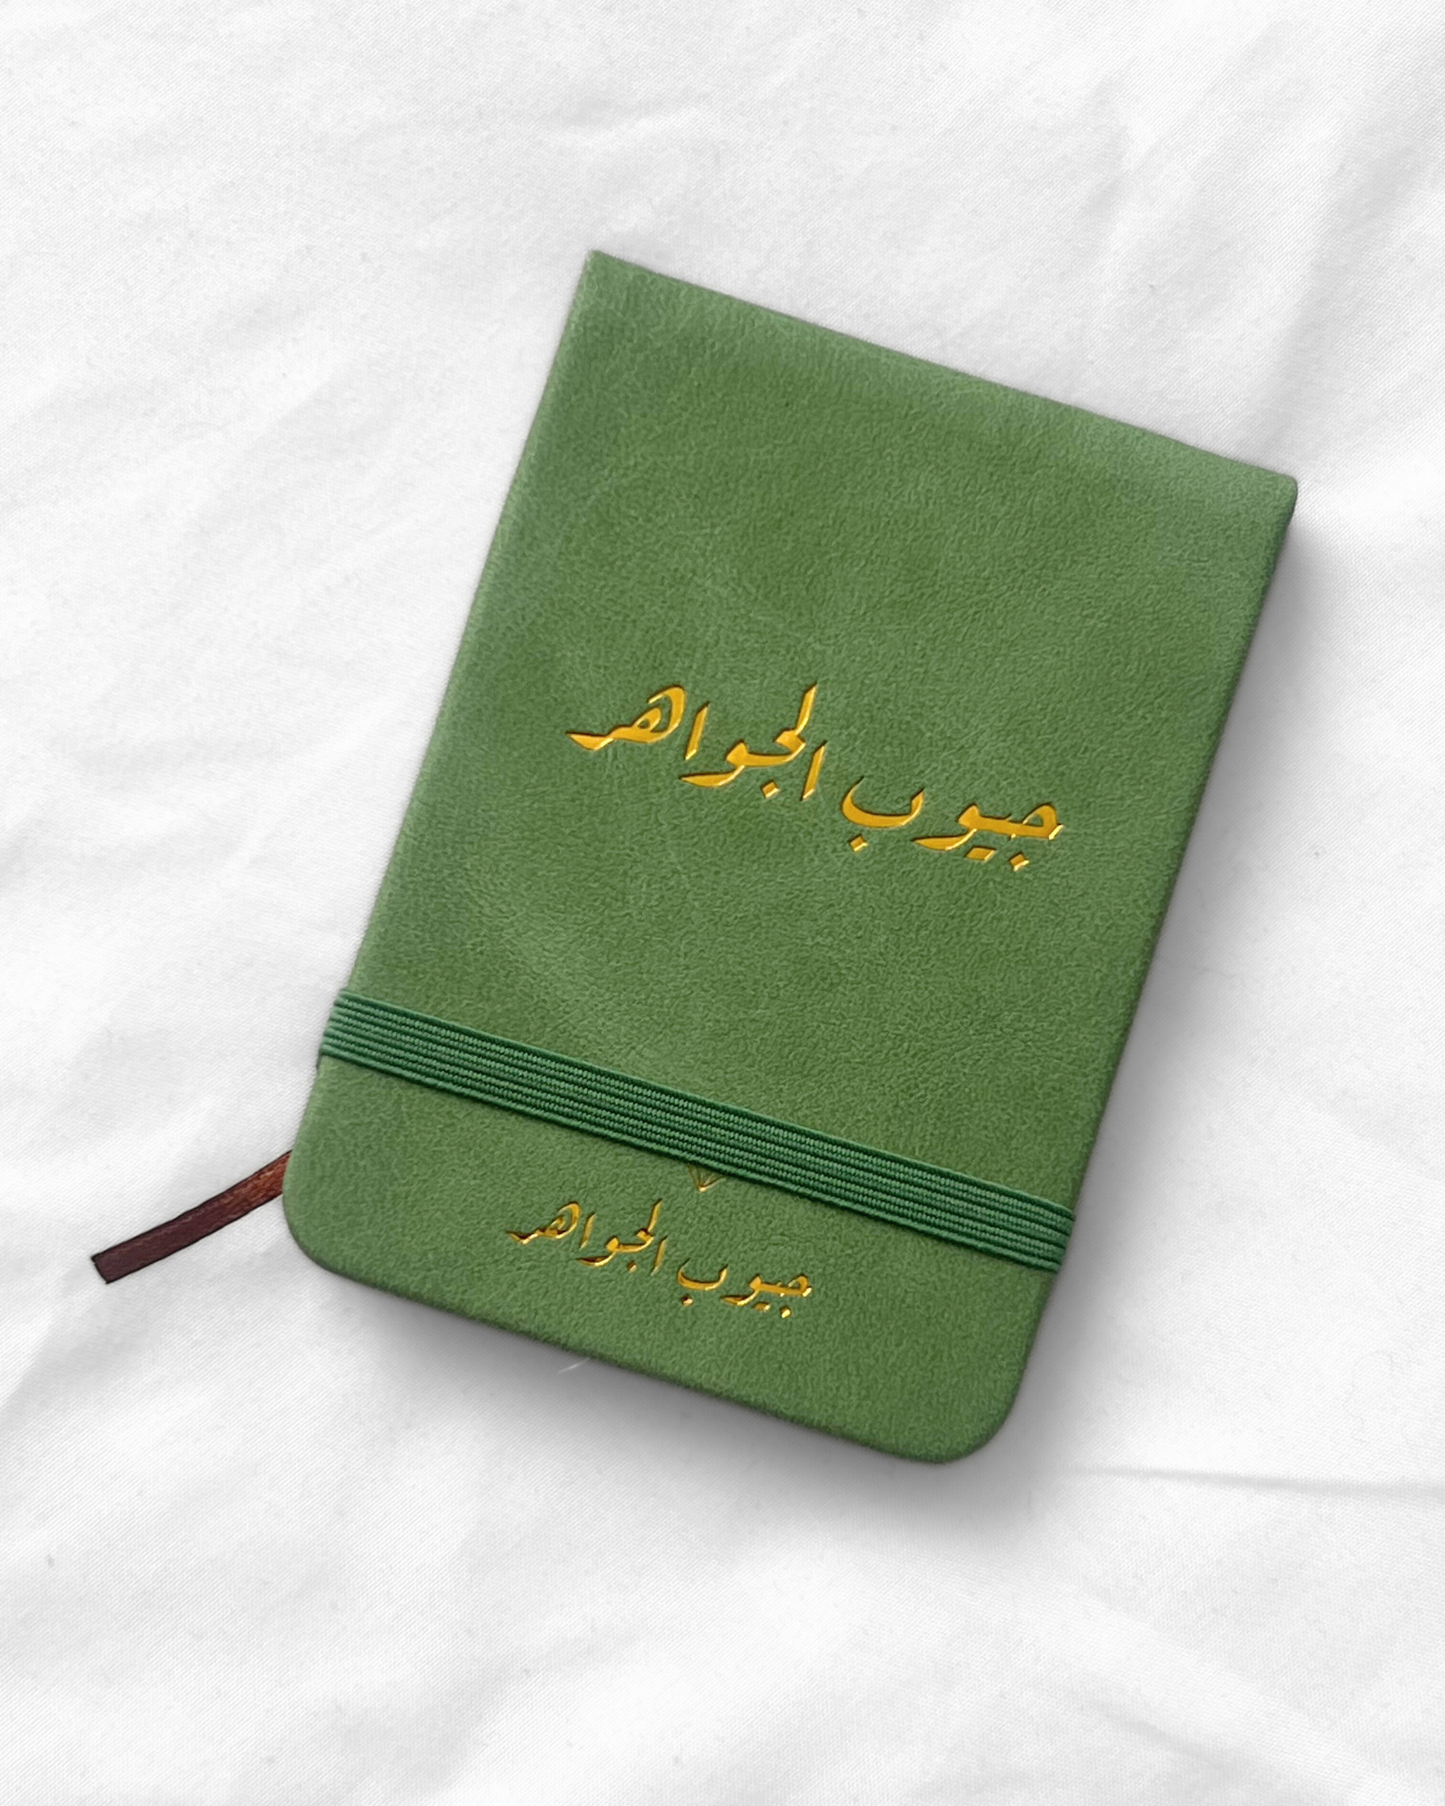 جيوب الجواهر
جيوب الجواهر